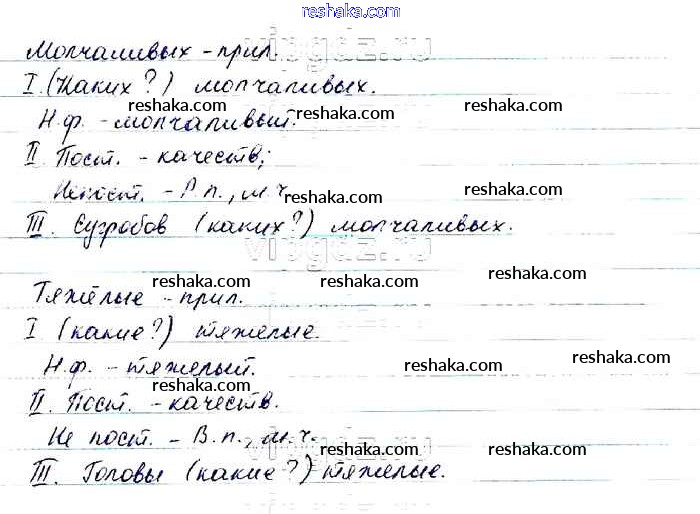 reshaka.com
Молчаливых - прил.
I. (Каких?) молчаливых.
reshaka.com reshaka.com reshaka.com
Н.ф. - молчаливый.
II Пост. - качеств;
Непост. - Р.п., м.ч.
reshaka.com reshaka.com
III. Сугробов (каких?) молчаливых.
vipgdz.ru
reshaka.com reshaka.com
Тяжёлые - прил.
I (какие?) тяжелые.
Н.ф. - тяжелый.
reshaka.com reshaka.com reshaka.com
II. Пост. - качеств.
Не пост. - В.п., м.ч.
reshaka.com reshaka.com
III. Головы (какие?) тяжелые.